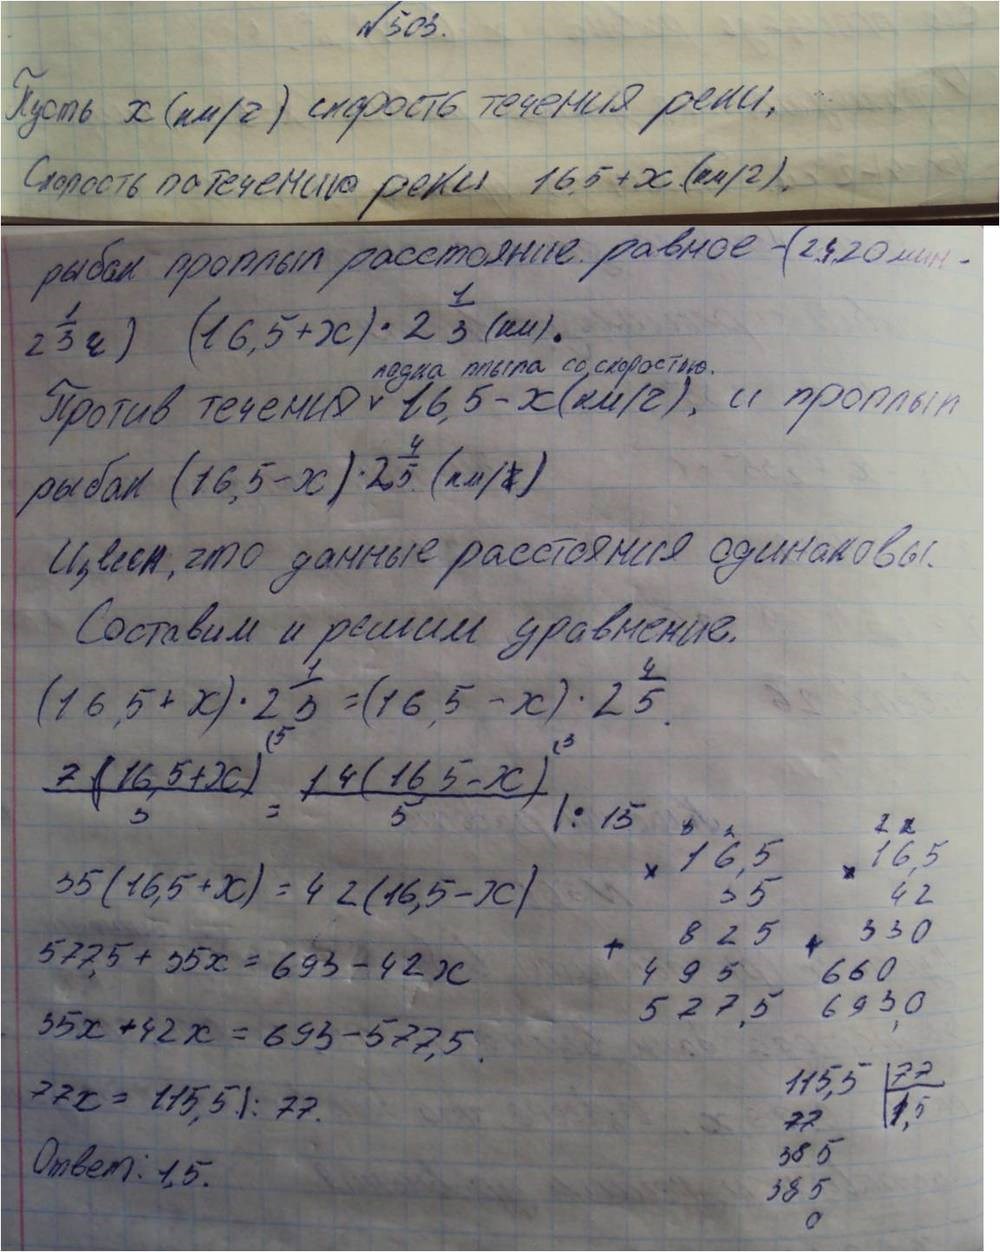 №503.
Пусть x (км/ч) скорость течения реки,
Скорость по течению реки 16,5+x (км/ч).
рыбак проплыл расстояние равное - (2ч.20мин -
2 1/3 ч) (16,5+x)·2 1/3 (км).
лодка плыла со скоростью.
Против течения 16,5-x (км/ч), и проплыл
рыбак (16,5-x)·2 4/5 (км/ч)
что данные расстояния одинаковы.
Составим и решим уравнение.
(16,5+x)·2 1/3 = (16,5-x)·2 4/5.
7(16,5+x)/3 (5 = 14(16,5-x)/5 (3 |:15
35(16,5+x) = 42(16,5-x)
577,5+35x = 693-42x
35x+42x = 693-577,5.
77x = 115,5 |:77.
Ответ: 1,5.
3 2
× 16,5
35
+ 825
495
527,5
2 2
× 16,5
42
+ 330
660
693,0
115,5 | 77
77 1,5
385
385
0